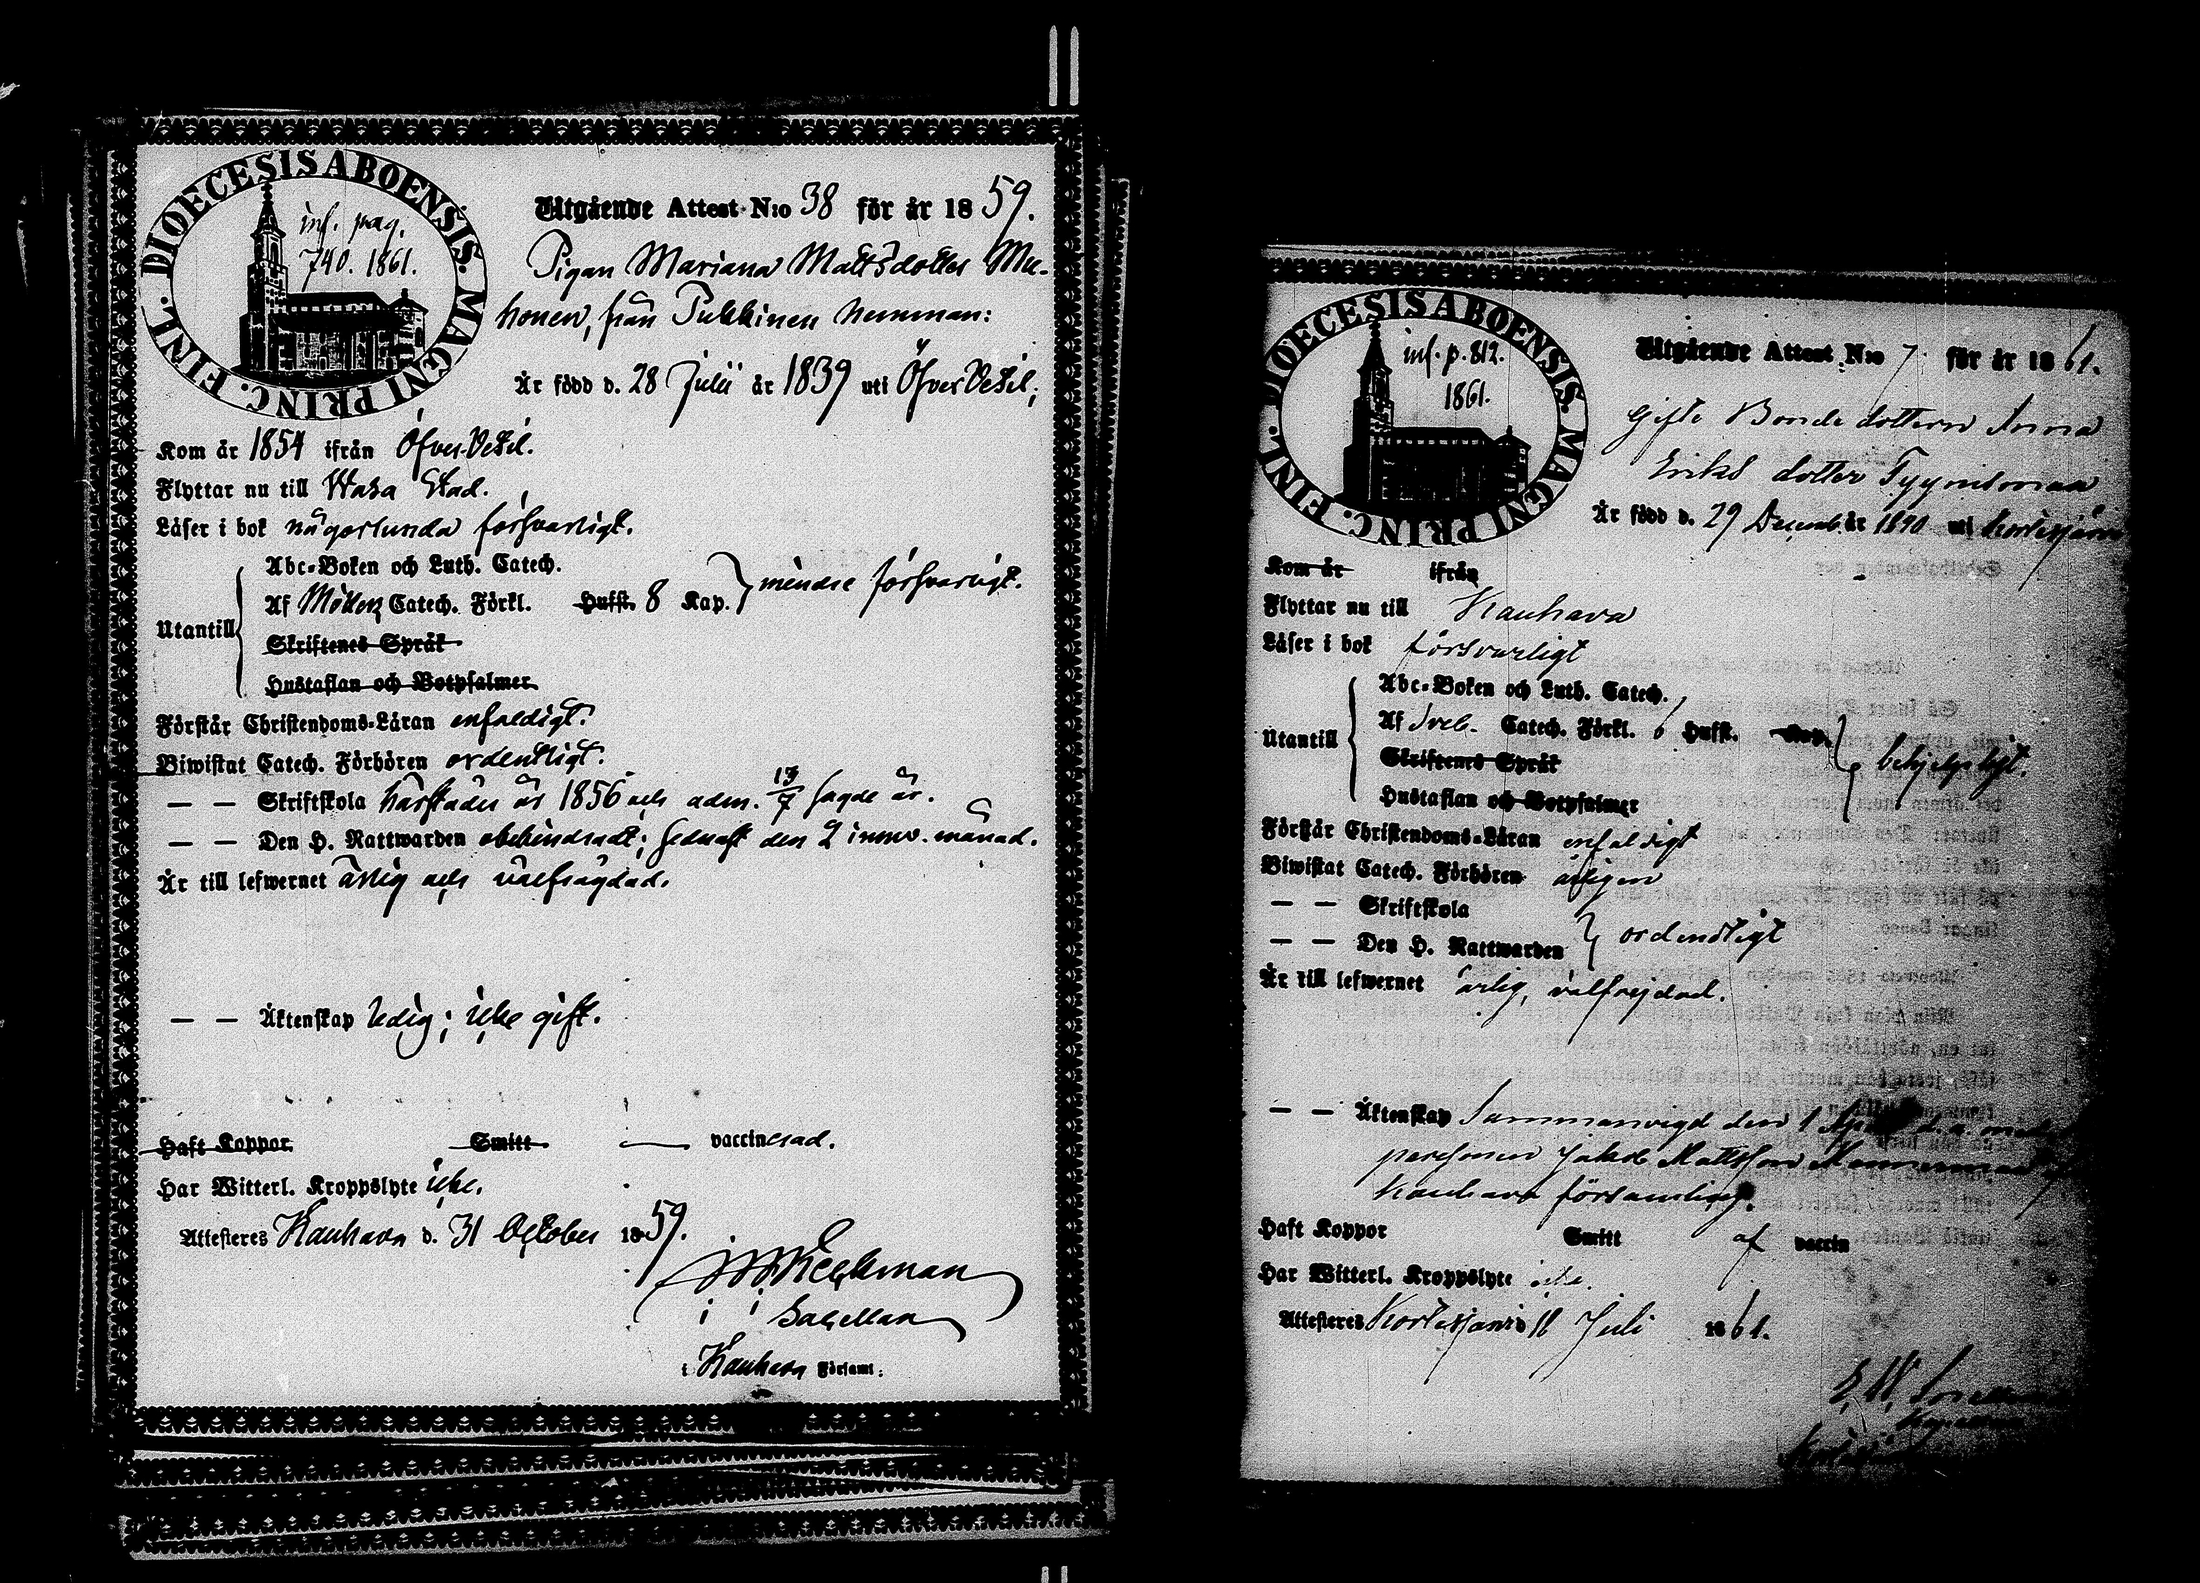 DIOECESIS ABOENSIS. MAGNI PRINC. FINL.
inf. pag.
740. 1861.
Utgående Attest N:o 38 för år 1859.
Pigan Mariana Mattsdotter Mu-
honen, från Pukkinen hemman:
Är född d. 28 Julii år 1839 uti ÖfverVetil;
Kom år 1854 ifrån ÖfverVetil.
Flyttar nu till Wasa Stad.
Läser i bok någorlunda försvarligt.
Utantill
Abc-Boken och Luth. Catech.
Af Möllers Catech. Förkl. Hufst. 8 Kap. mindre försvarligt.
Skriftenes Språk
Hustaflan och Botpsalmer
Förstår Christendoms-Läran enfaldigt.
Biwistat Catech. Förhören ordentligt.
— — Skriftskola härstädes år 1856 och adm. 13/7 sagde år.
— — Den H. Nattwarden obehindradt; sednast den 2 innev. månad.
Är till lefwernet ärlig och välfrägdad.
— — Äktenskap ledig; icke gift.
Haft Koppor Smitt — vaccinerad.
Har Witterl. Kroppslyte icke.
Attesteras Kauhava d. 31 October 1859.
Kapellan
i Kauhava Församl:
DIOECESIS ABOENSIS. MAGNI PRINC. FINL.
inf. p. 812.
1861.
Utgående Attest N:o 7. för år 1861.
Gifte Bonde dottern Anna
Eriks dotter Tyynismaa
Är född d. 29 Decemb. år 1840 uti Kortesjärvi
Kom år ifrån
Flyttar nu till Kauhava
Läser i bok försvarligt
Utantill
Abc-Boken och Luth. Catech.
Af Sveb. Catech. Förkl. 6 Hufst. Kap. behjelpligt.
Skriftenes Språk
Hustaflan och Botpsalmer
Förstår Christendoms-Läran enfaldigt
Biwistat Catech. Förhören årligen
— — Skriftskola
— — Den H. Nattwarden ordentligt
Är till lefwernet ärlig, välfrejdad.
— — Äktenskap Sammanvigd den 1 d.å. med
personen Jakob Mattsson
Kauhava församling.
Haft Koppor Smitt af vaccin
Har Witterl. Kroppslyte icke.
Attesteras Kortesjärvi d. 11 Juli 1861.